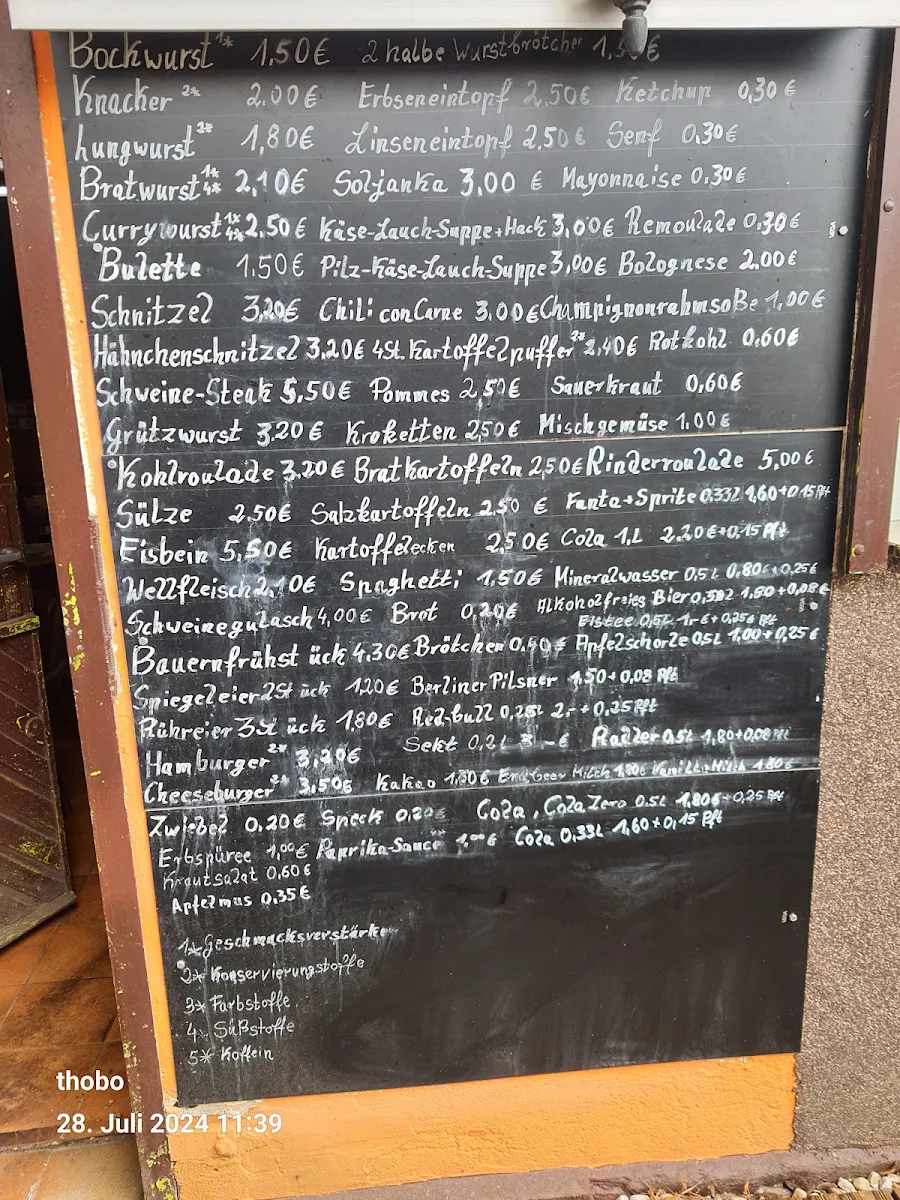 Bockwurst 1* 1,50€ 2 halbe Wurstbrötchen 1,50€
Knacker 2* 2.00€ Erbseneintopf 2,50€ Ketchup 0,30€
Lungwurst 2* 1,80€ Linseneintopf 2,50€ Senf 0,30€
Bratwurst 1* 4* 2,10€ Soljanka 3,00 € Mayonnaise 0,30€
Currywurst 1* 4* 2,50€ Käse-Lauch-Suppe+Hack 3,00€ Remoulade 0,30€
Bulette 1.50€ Pilz-Käse-Lauch-Suppe 3,00€ Bolognese 2.00€
Schnitzel 3,20€ Chili con Carne 3,00€ Champignonrahmsoße 1,00€
Hähnchenschnitzel 3,20€ 4St. Kartoffelpuffer 2* 2,40€ Rotkohl 0,60€
Schweine-Steak 5,50€ Pommes 2,50€ Sauerkraut 0,60€
Grützwurst 3,20€ Kroketten 2,50€ Mischgemüse 1,00€
Kohlroulade 3,20€ Bratkartoffeln 2,50€ Rinderroulade 5,00€
Sülze 2,50€ Salzkartoffeln 2,50 € Fanta+Sprite 0,33L 1,60+0,15 Pft
Eisbein 5,50€ Kartoffelecken 2,50€ Cola 1,L 2,20€+0,15 Pft
Wellfleisch 2,10€ Spaghetti 1,50€ Mineralwasser 0,5L 0,80€+0,25€
Schweinegulasch 4,00€ Brot 0,20€ Alkoholfreies Bier 0,33L 1,50+0,08€
Eistee 0,5L 1,-€+0,25€ Pft
Bauernfrühstück 4.30€ Brötchen 0.40€ Apfelschorle 0,5L 1,00+0,25€
Spiegeleier 2 Stück 1,20€ Berliner Pilsner 1,50+0,08 Pft
Rühreier 3 Stück 1,80€ Red-bull 0,25L 2,-+0,25 Pft
Hamburger 2* 3,20€ Sekt 0,2L 3,-€ Radler 0,5L 1,80+0,08 Pft
Cheeseburger 2* 3,50€ Kakao 1,80€ Erdbeer Milch 1,80€ Vanille-Milch 1,80€
Zwiebel 0,20€ Speck 0,20€ Cola, Cola Zero 0,5L 1,80€+0,25 Pft
Erbspüree 1,00€ Paprika-Sauce 1,00€ Cola 0,33L 1,60+0,15 Pft
Krautsalat 0,60€
Apfelmus 0,35€
1* Geschmacksverstärker
2* Konservierungstoffe
3* Farbstoffe
4* Süßstoffe
5* Koffein
thobo
28. Juli 2024 11:39